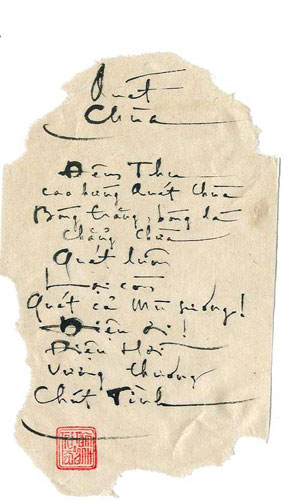 Quét
Chùa
Đêm Thu
cao hứng Quét Chùa
Bóng trăng, bóng lá
chẳng chừa
Quét luôn
Lại còn
Quét cả Mũ
Điệu ơi!
Điệu Hỡi
Vướng thương
Chất Tình